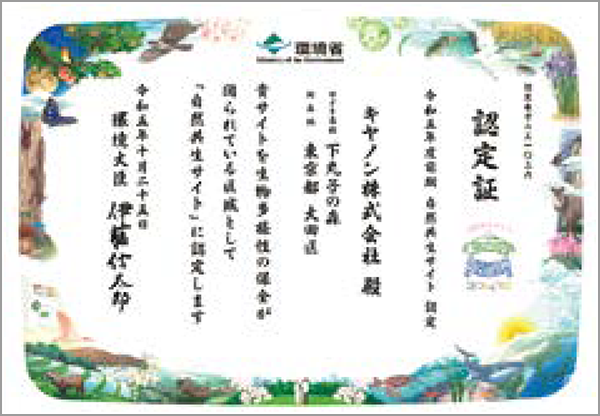 環境省
認定証
令和五年度前期 自然共生サイト 認定
キヤノン株式会社 殿
サイト名称 下丸子の森
所在地 東京都 大田区
貴サイトを生物多様性の保全が
図られている区域として
「自然共生サイト」に認定します
令和五年十月二十五日
環境大臣 伊藤信太郎